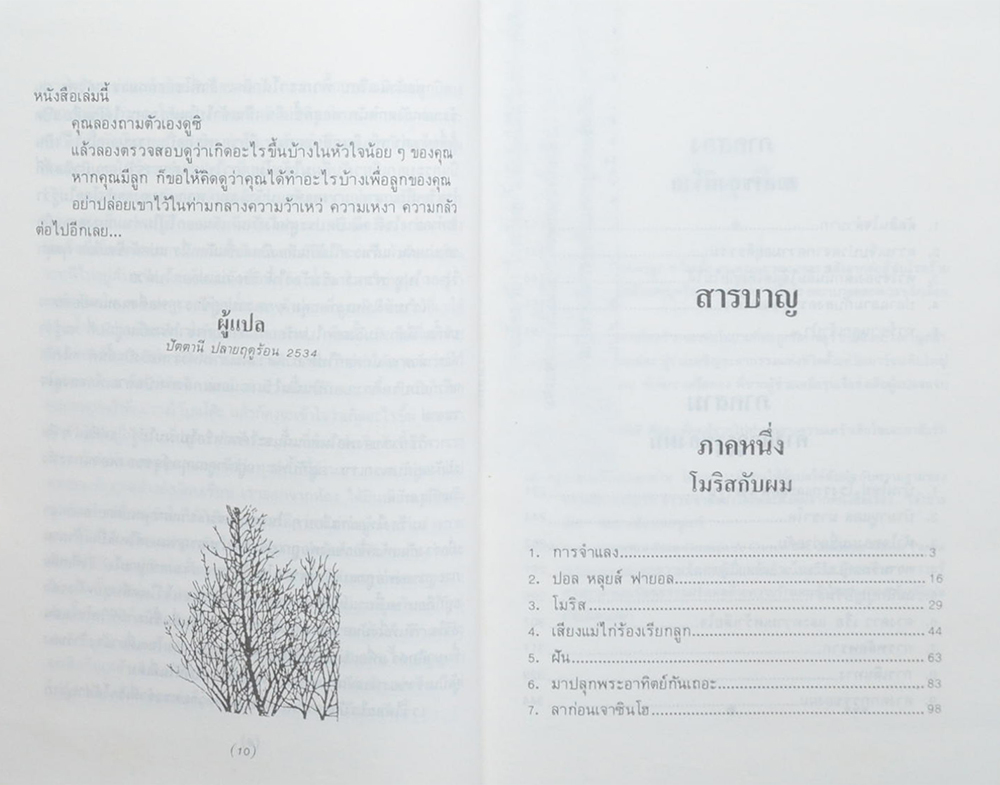 หนังสือเล่มนี้
คุณลองถามตัวเองดูซิ
แล้วลองตรวจสอบดูว่าเกิดอะไรขึ้นบ้างในหัวใจน้อย ๆ ของคุณ
หากคุณมีลูก ก็ขอให้คิดดูว่าคุณได้ทำอะไรบ้างเพื่อลูกของคุณ
อย่าปล่อยเขาไว้ในท่ามกลางความว้าเหว่ ความเหงา ความกลัว
ต่อไปอีกเลย...
ผู้แปล
ปัตตานี ปลายฤดูร้อน 2534
(10)
สารบาญ
ภาคหนึ่ง
โมริสกับผม
1. การจำแลง...3
2. ปอล หลุยส์ ฟายอล...16
3. โมริส...29
4. เสียงแม่ไก่ร้องเรียกลูก...44
5. ฝัน...63
6. มาปลุกพระอาทิตย์กันเถอะ...83
7. ลาก่อนเจาซินโฮ...98